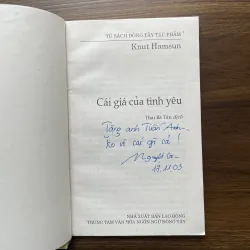 TỦ SÁCH ĐÔNG TÂY TÁC PHẨM
Knut Hamsun
Cái giá của tình yêu
Thái Bá Tân dịch
Tặng anh Tuấn Anh
Ko vì cái gì cả!
13.11.03
NHÀ XUẤT BẢN LAO ĐỘNG
TRUNG TÂM VĂN HÓA NGÔN NGỮ ĐÔNG TÂY